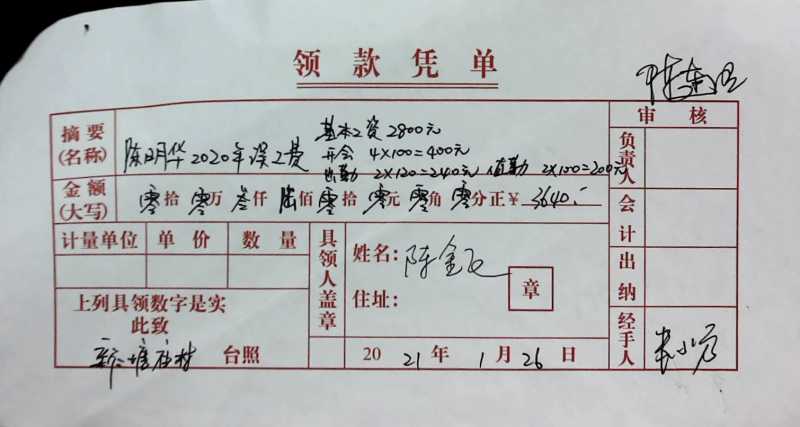 领款凭单
审核
摘要(名称) 陈明华2020年误工费
基本工资 2800元
开会 4×100=400元
出勤 2×120=240元 值勤 2×100=200元
负责人
金额(大写) 零拾零万叁仟陆佰零拾零元零角零分正¥ 3640.-
会计
计量单位 单价 数量
具领人盖章
姓名: 陈金飞
住址:
章
出纳
上列具领数字是实
此致
新塘庄村 台照
2021年1月26日
经手人